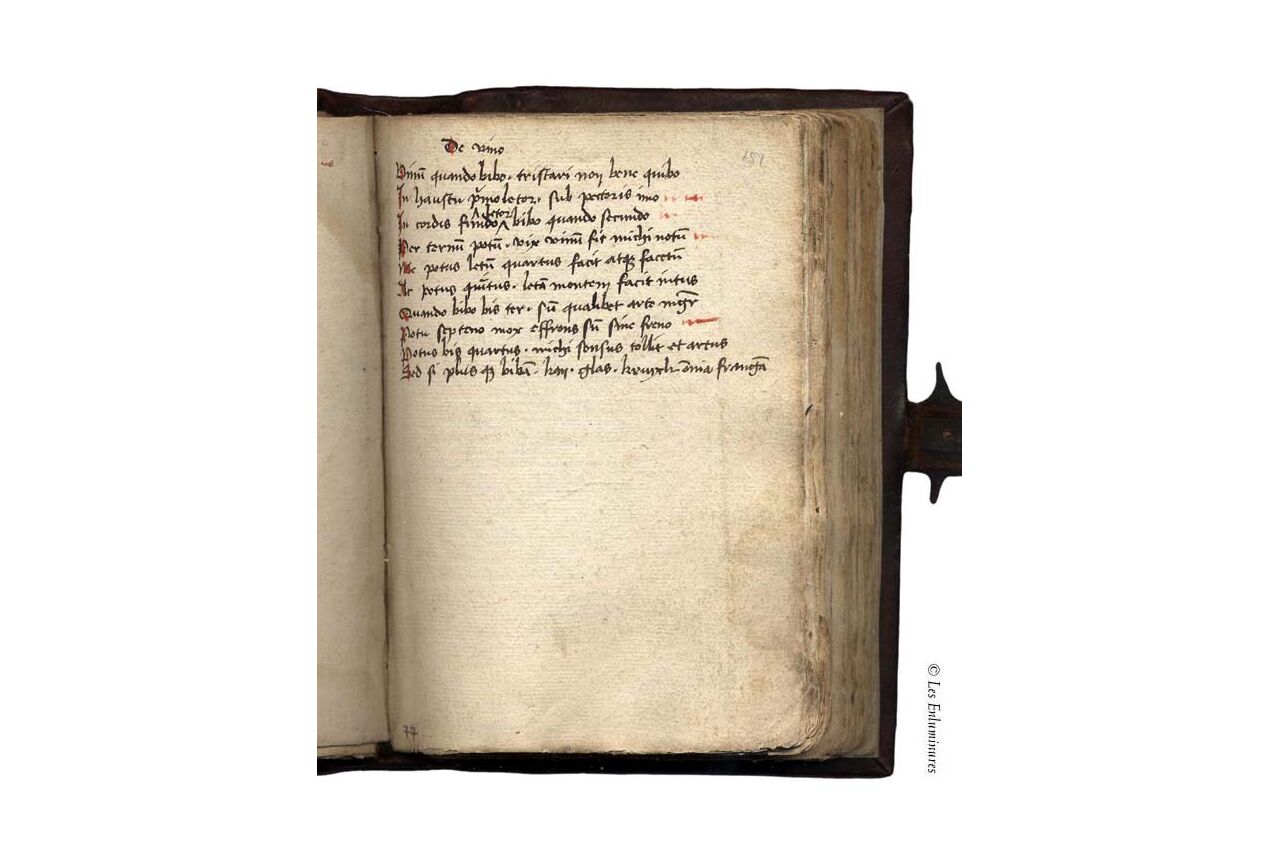 De vino
151
Vinū quando bibo · tristari non bene quibo
In haustu pͥmo letor · sub pectoris imo
letor
In cordis fundo ‸ bibo quando secundo
Per ternū potū · vix vinū fit michi notū
Me potus letū quartus facit atqꝫ facetū
Ac potus quītus · letā mentem facit intus
Quando bibo bis ter · sū qualibet arte mgr̄
Potu septeno mox effrons sū sine freno
Potus bis quartus · michi sensus tollit et artus
Sed si plus bibā · kan · glas · oīa frangā
77
© Les Enluminures